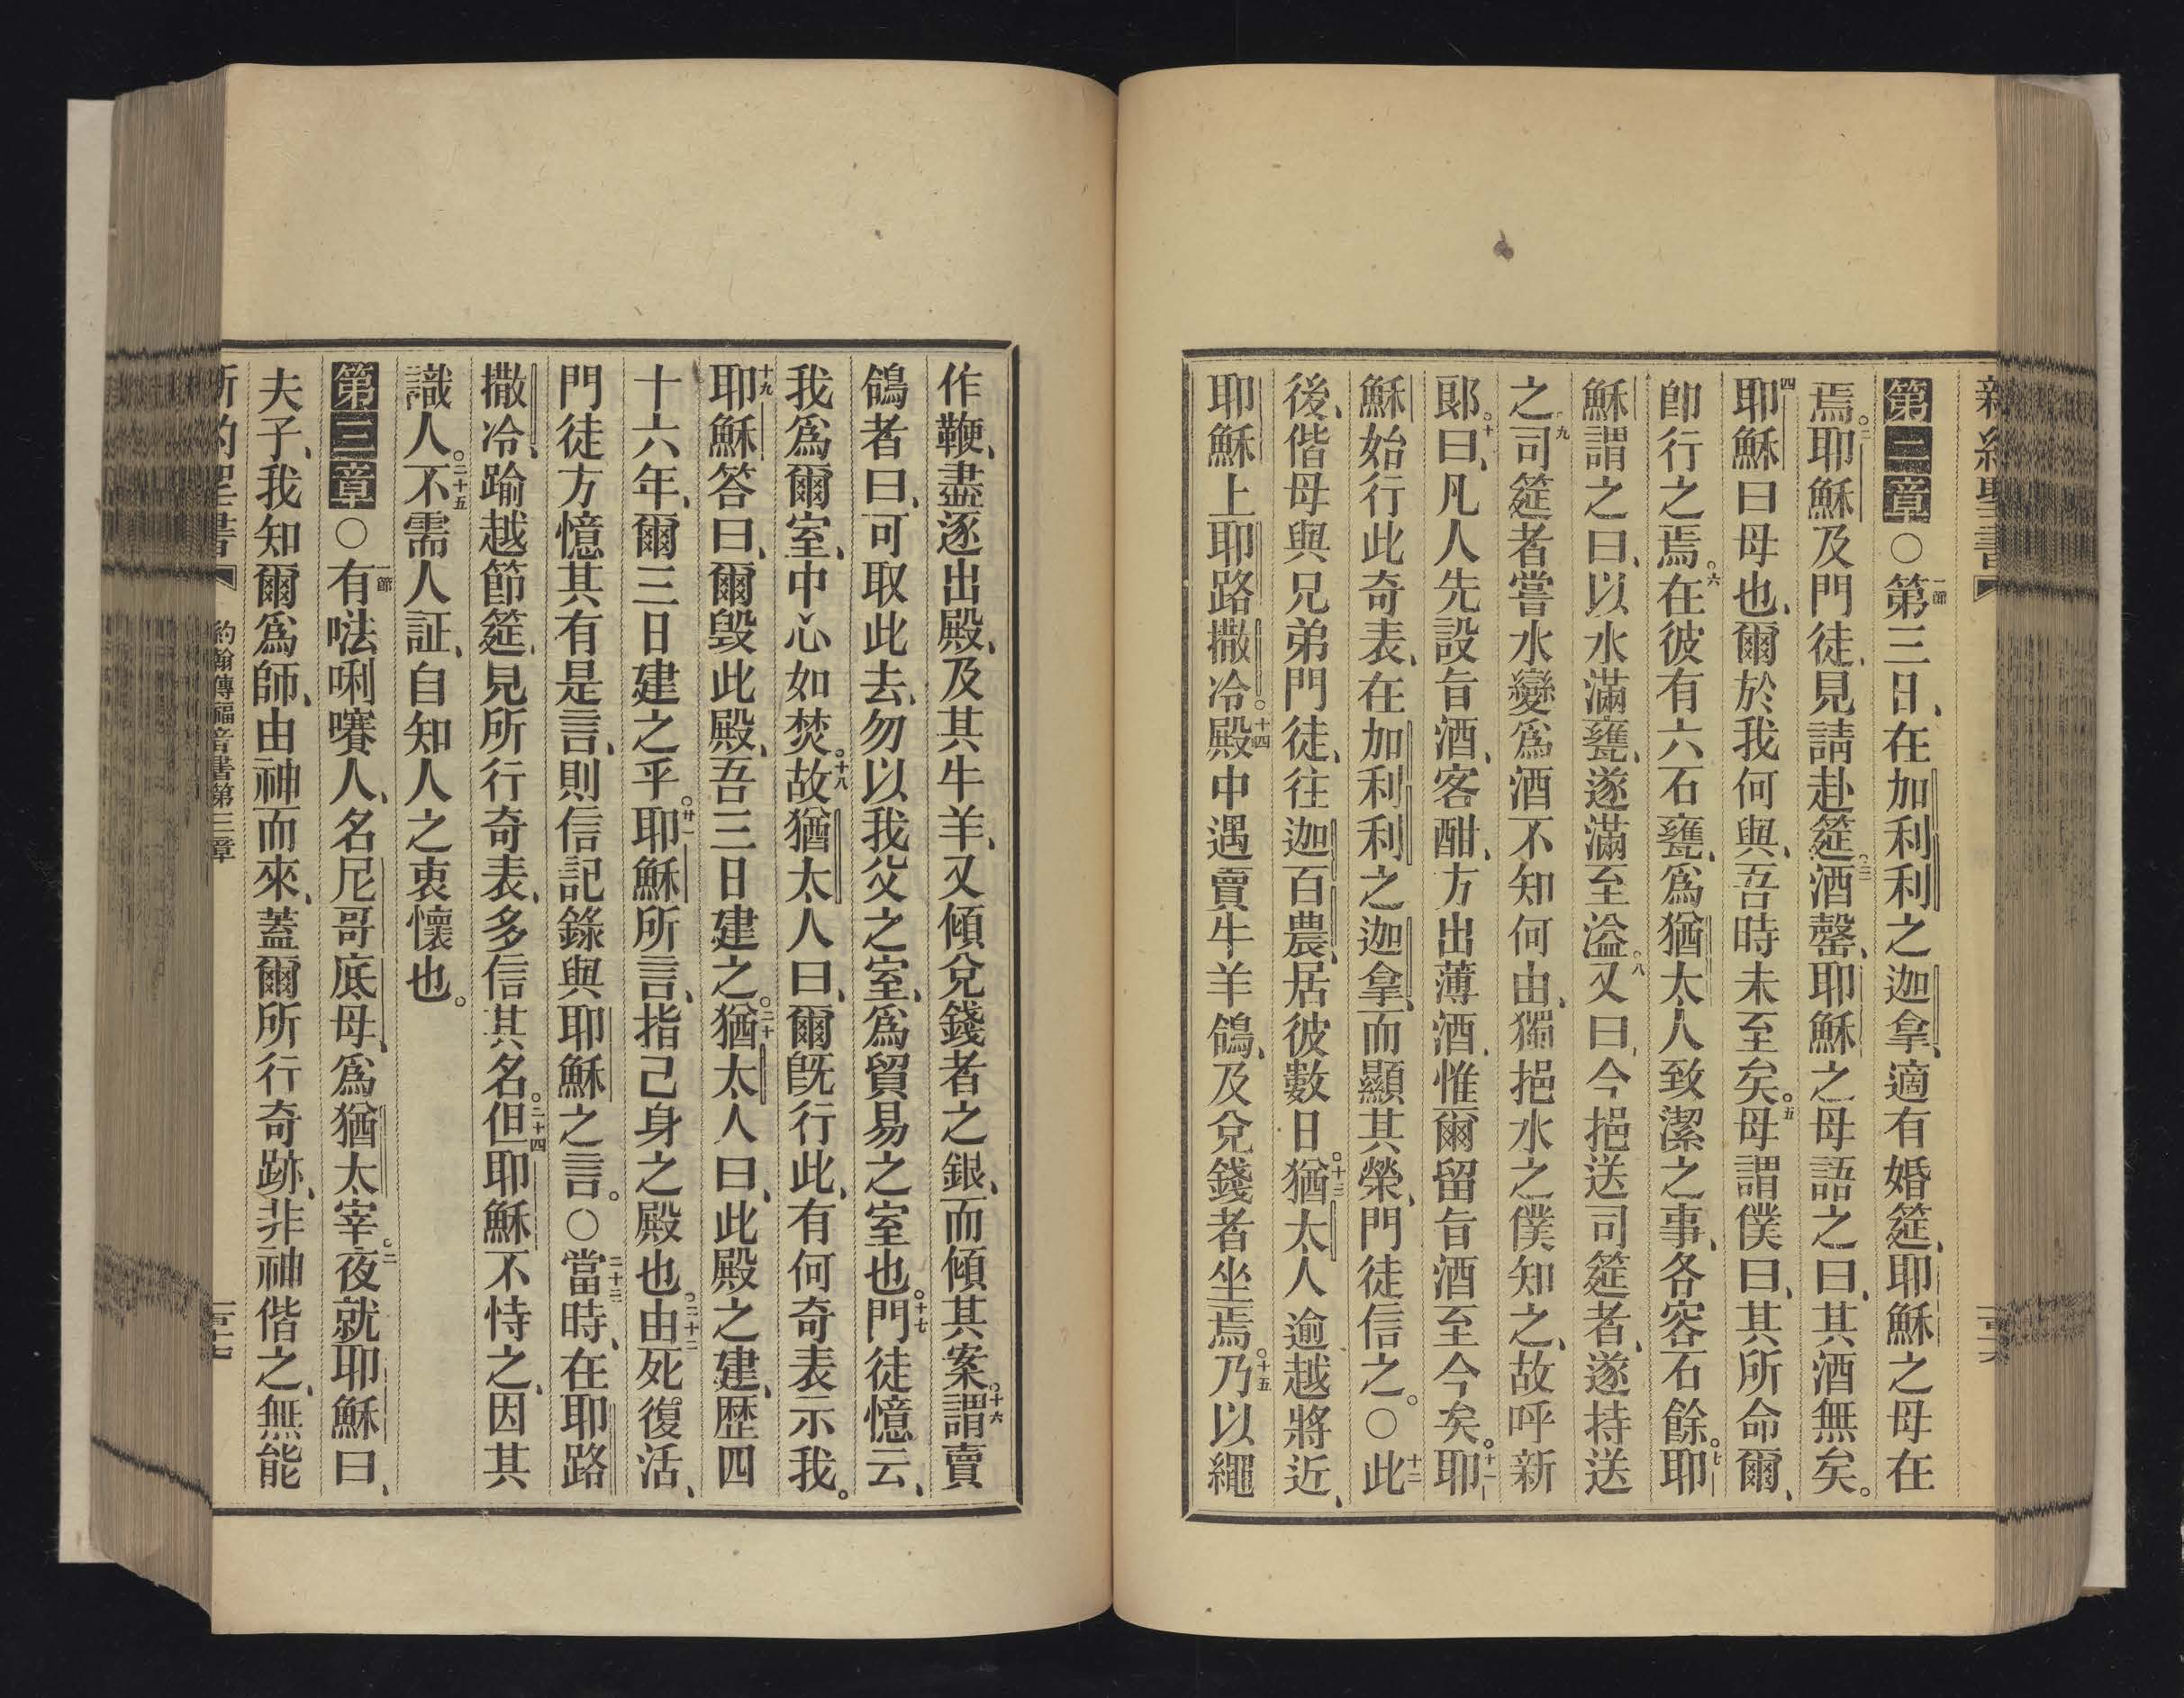 新約聖書
第二章○一節第三日、在加利利之迦拿、適有婚筵、耶穌之母在
焉。二耶穌及門徒、見請赴筵。三酒罄、耶穌之母語之曰、其酒無矣。
四耶穌曰母也、爾於我何與、吾時未至矣。五母謂僕曰、其所命爾、
卽行之焉。六在彼有六石甕、爲猶太人致潔之事、各容石餘。七耶
穌謂之曰、以水滿甕、遂滿至溢。八又曰、今挹送司筵者、遂持送
之。九司筵者嘗水變爲酒不知何由、獨挹水之僕知之、故呼新
郞。十曰、凡人先設旨酒、客酣、方出薄酒、惟爾留旨酒至今矣。十一耶
穌始行此奇表、在加利利之迦拿、而顯其榮、門徒信之。○十二此
後、偕母與兄弟門徒、往迦百農、居彼數日。十三猶太人逾越將近、
耶穌上耶路撒冷。十四殿中遇賣牛羊鴿、及兌錢者坐焉。十五乃以繩
作鞭、盡逐出殿、及其牛羊、又傾兌錢者之銀、而傾其案。十六謂賣
鴿者曰、可取此去、勿以我父之室、爲貿易之室也。十七門徒憶云、
我爲爾室、中心如焚。十八故猶太人曰、爾旣行此、有何奇表示我。
十九耶穌答曰、爾毀此殿、吾三日建之。二十猶太人曰、此殿之建、歷四
十六年、爾三日建之乎。廿一耶穌所言、指己身之殿也。二十二由死復活、
門徒方憶其有是言、則信記錄與耶穌之言。○二十三當時、在耶路
撒冷、踰越節筵、見所行奇表、多信其名。二十四但耶穌不恃之、因其
識人。二十五不需人証、自知人之衷懷也。
第三章○一節有𠵽唎㘔人、名尼哥底母、爲猶太宰。二夜就耶穌曰、
夫子、我知爾爲師、由神而來、蓋爾所行奇跡、非神偕之、無能
新約聖書 約翰傳福音書第三章